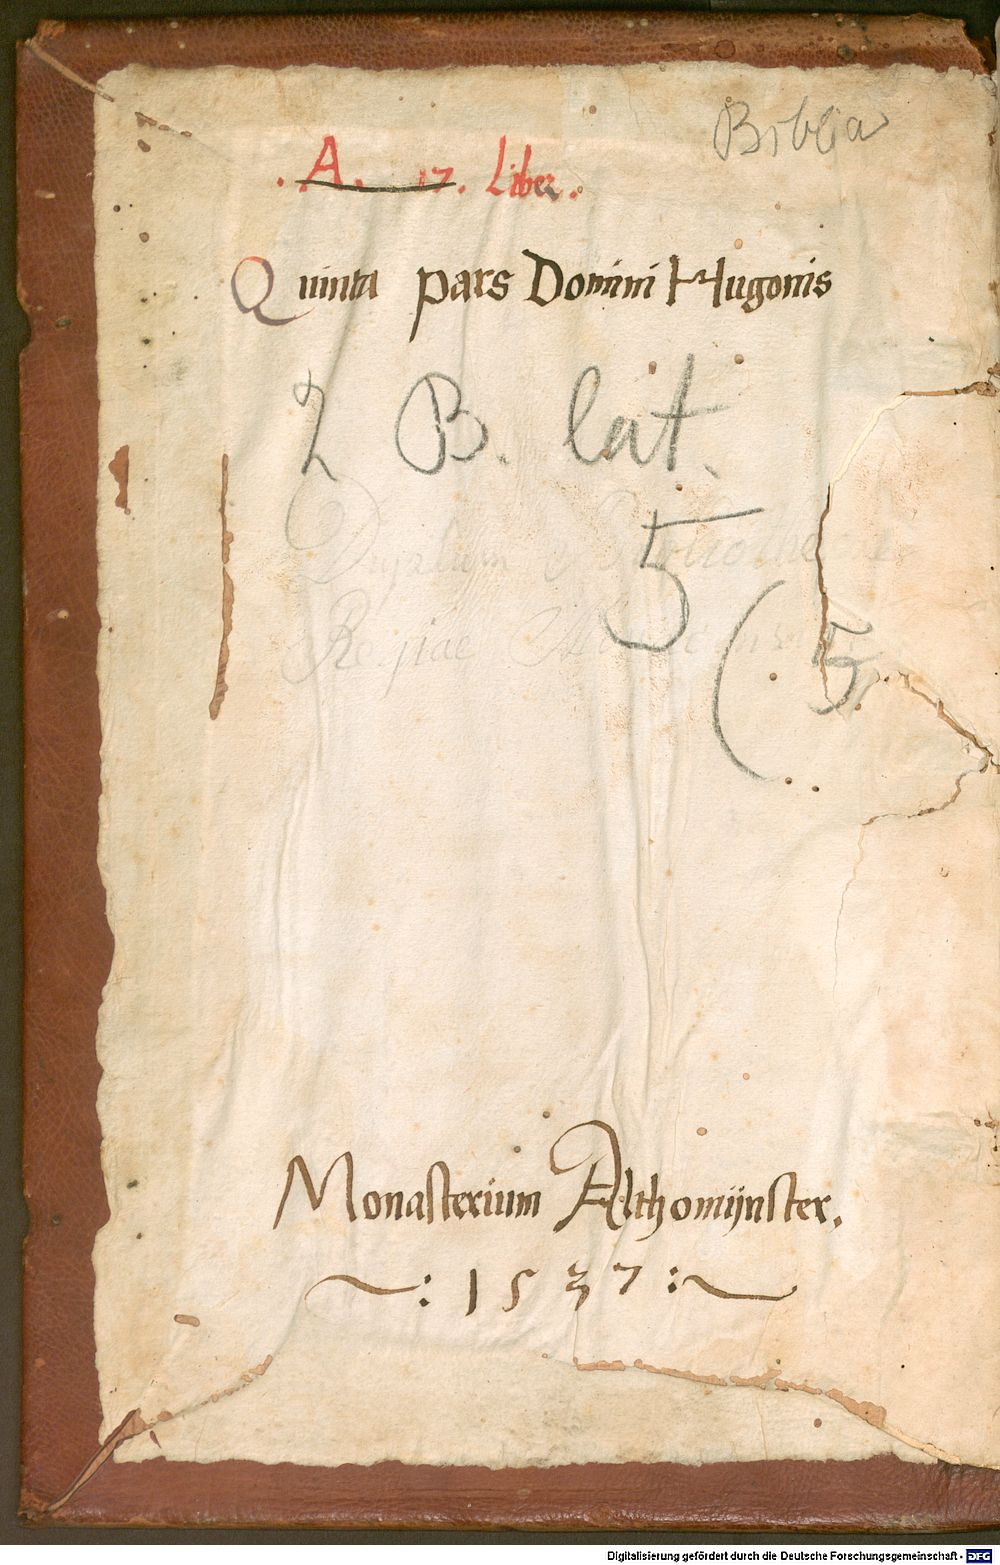 Biblia
. A. 17. Liber.
Quinta pars Domini Hugonis
2 B. lat.
5
Duplum Bibliothecae
(5
Regiae
Monasterium Althomijnster.
~: 1537 :~
Digitalisierung gefördert durch die Deutsche Forschungsgemeinschaft - DFG